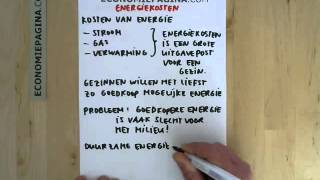 ECONOMIEPAGINA.com
ECONOMIEPAGINA.COM
ENERGIEKOSTEN
KOSTEN VAN ENERGIE
- STROOM
- GAS
- VERWARMING
ENERGIEKOSTEN
IS EEN GROTE
UITGAVEPOST
VOOR EEN
GEZIN.
GEZINNEN WILLEN HET LIEFST
ZO GOEDKOOP MOGELIJKE ENERGIE
PROBLEEM: GOEDKOPERE ENERGIE
IS VAAK SLECHT VOOR
HET MILIEU!
DUURZAME ENERGIE